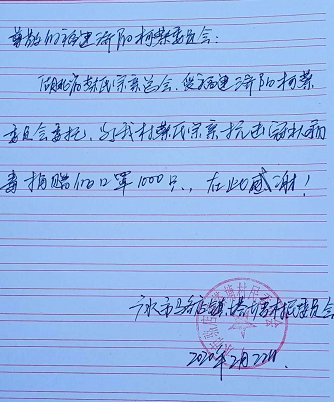 尊敬的福建济阳柯蔡委员会:
湖北省蔡氏宗亲总会,受福建济阳柯蔡
委员会委托,为我村蔡氏宗亲抗击冠状病
毒捐赠的口罩1000只,在此感谢!
广水市马坪店镇 村民委员会
2020年2月22日